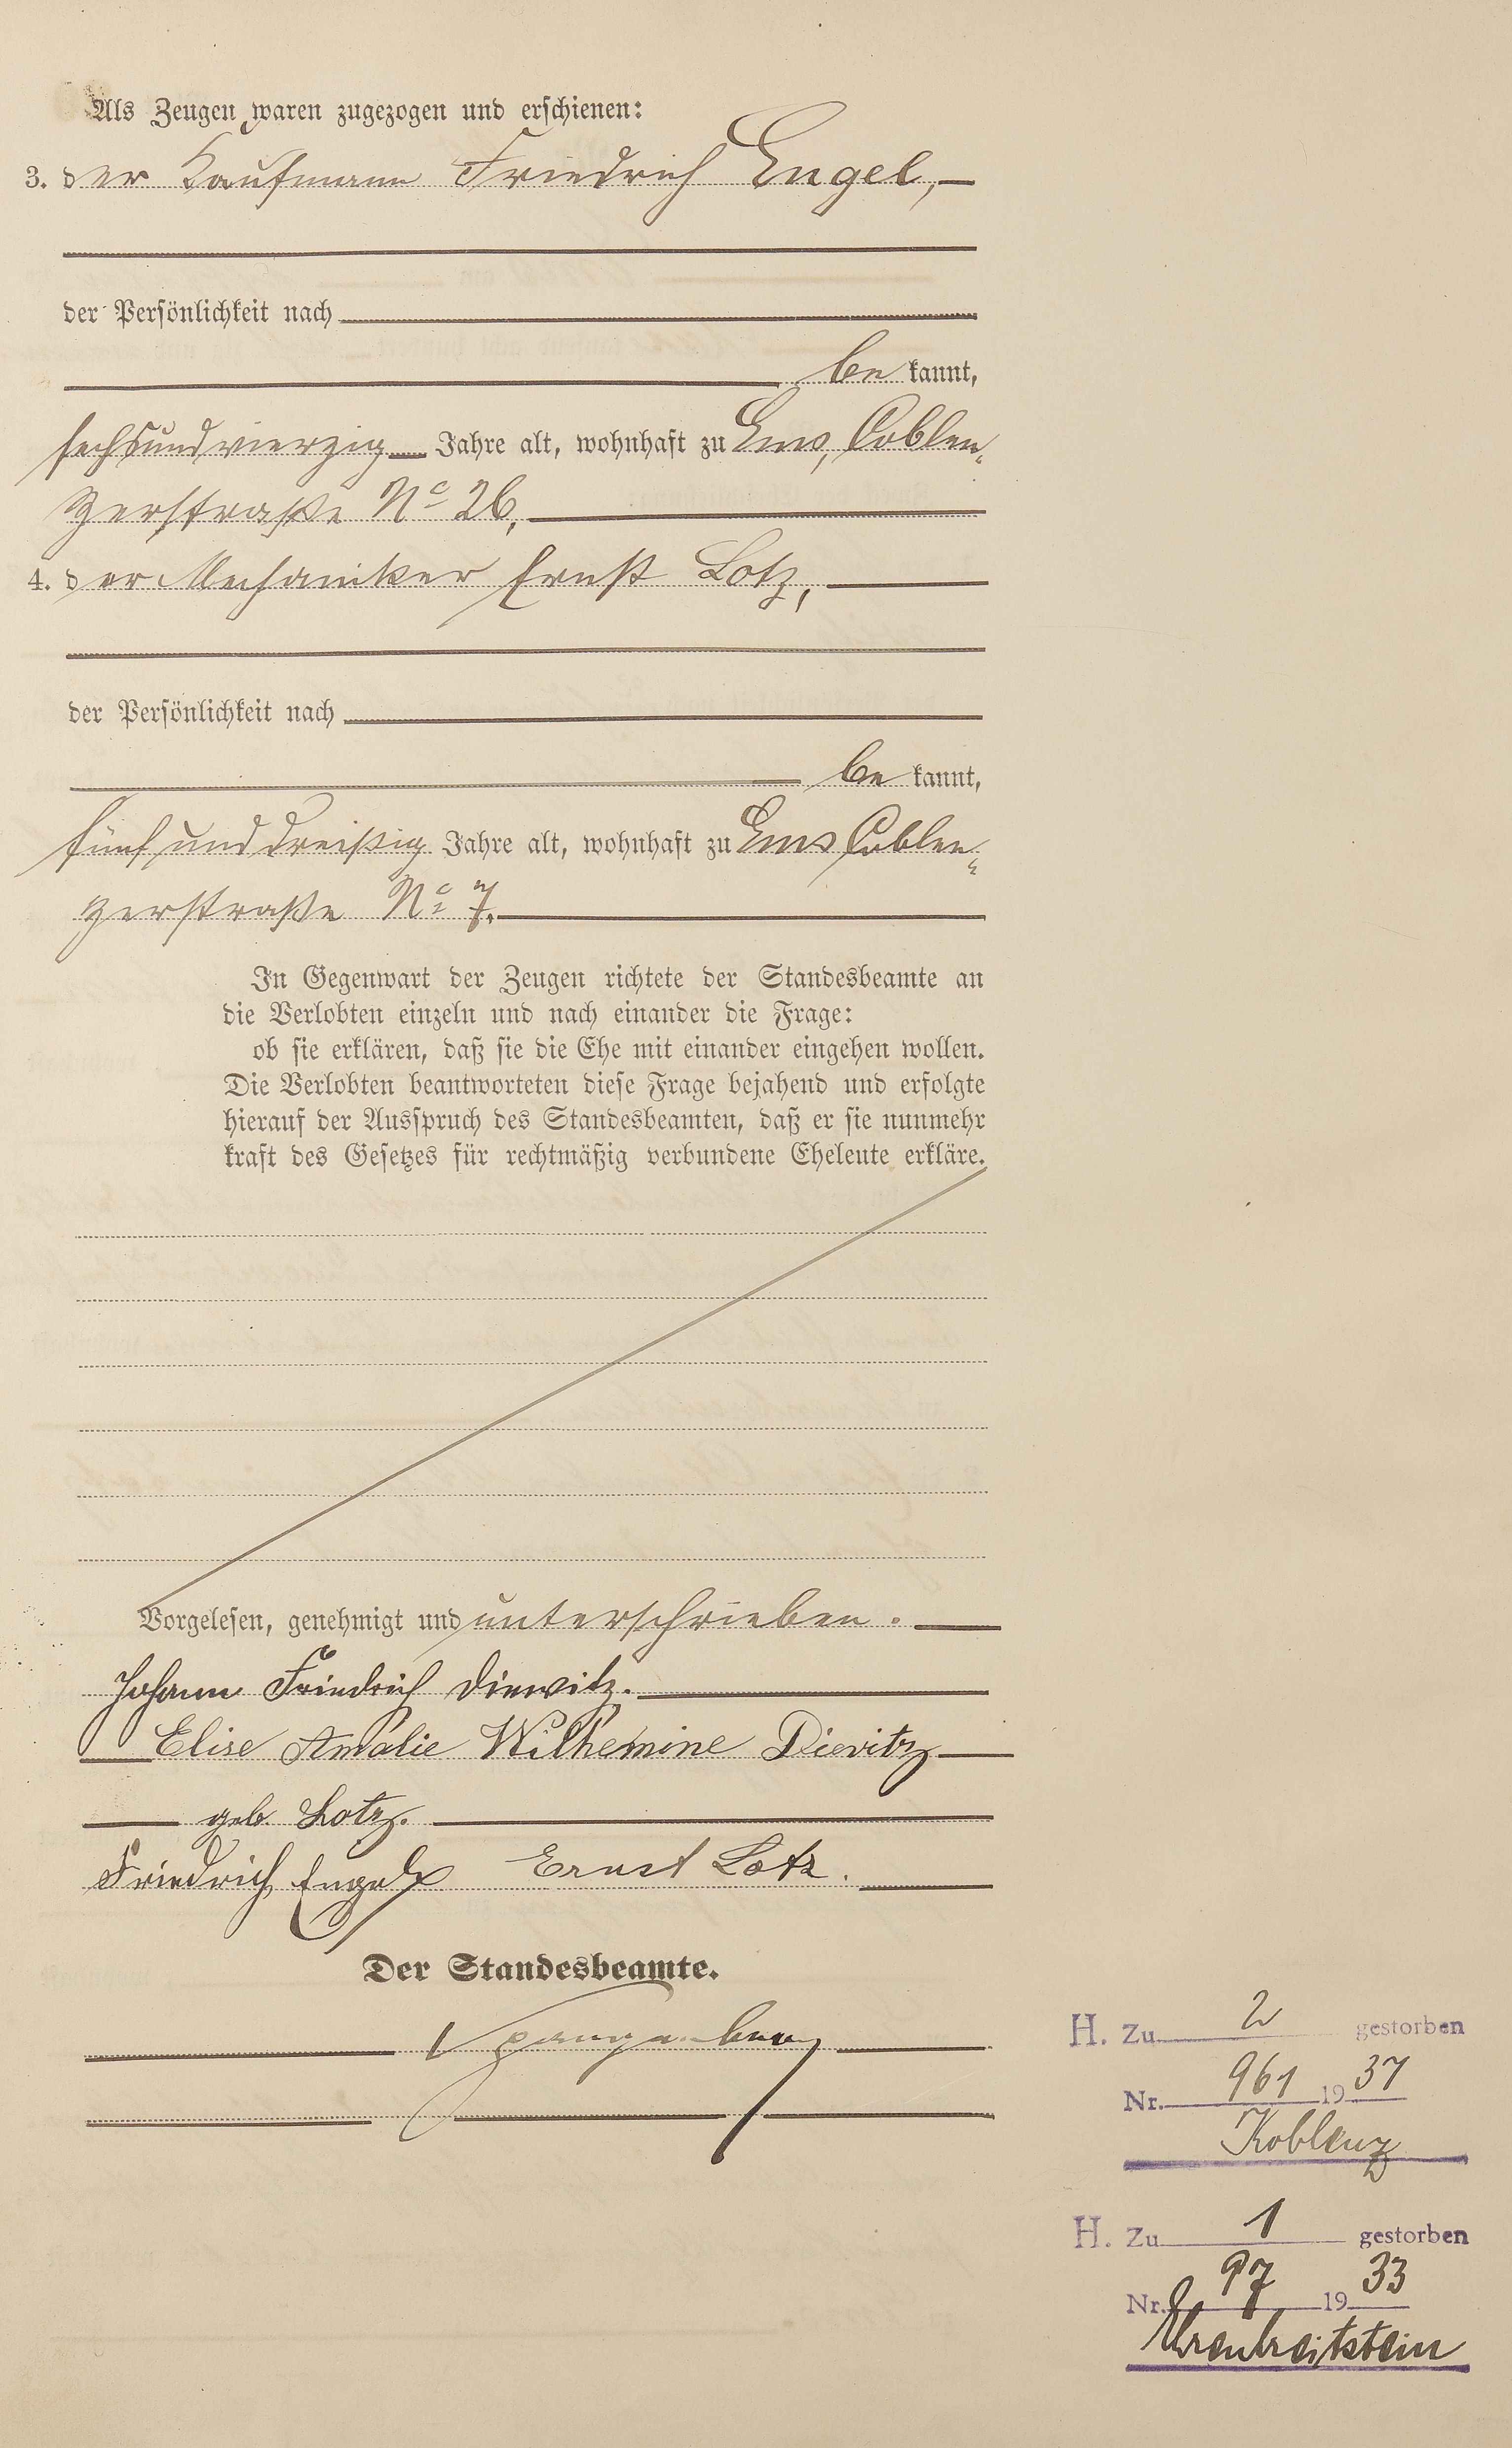 Als Zeugen waren zugezogen und erschienen:
3. der Kaufmann Friedrich Engel,
der Persönlichkeit nach
be kannt,
sechsundvierzig Jahre alt, wohnhaft zu Ems, Coblen-
zerstraße No 26,
4. der Mechaniker Ernst Lotz,
der Persönlichkeit nach
be kannt,
fünfunddreißig Jahre alt, wohnhaft zu Ems Coblen-
zerstraße No 7.
In Gegenwart der Zeugen richtete der Standesbeamte an
die Verlobten einzeln und nach einander die Frage:
ob sie erklären, daß sie die Ehe mit einander eingehen wollen.
Die Verlobten beantworteten diese Frage bejahend und erfolgte
hierauf der Ausspruch des Standesbeamten, daß er sie nunmehr
kraft des Gesetzes für rechtmäßig verbundene Eheleute erkläre.
Vorgelesen, genehmigt und unterschrieben.
Johann Friedrich Diewitz.
Elise Amalie Wilhemine Diewitz
geb. Lotz.
Friedrich Engel Ernst Lotz.
Der Standesbeamte.
Spangenberg
H. Zu 2 gestorben
Nr. 961 1937
Koblenz
H. Zu 1 gestorben
Nr. 97 1933
Ehrenbreitstein